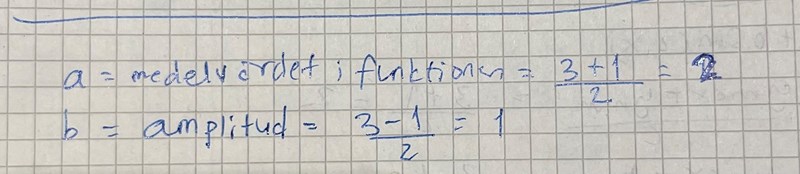 a = medelvärdet i funktionen = 3+1/2 = 2
b = amplitud = 3-1/2 = 1